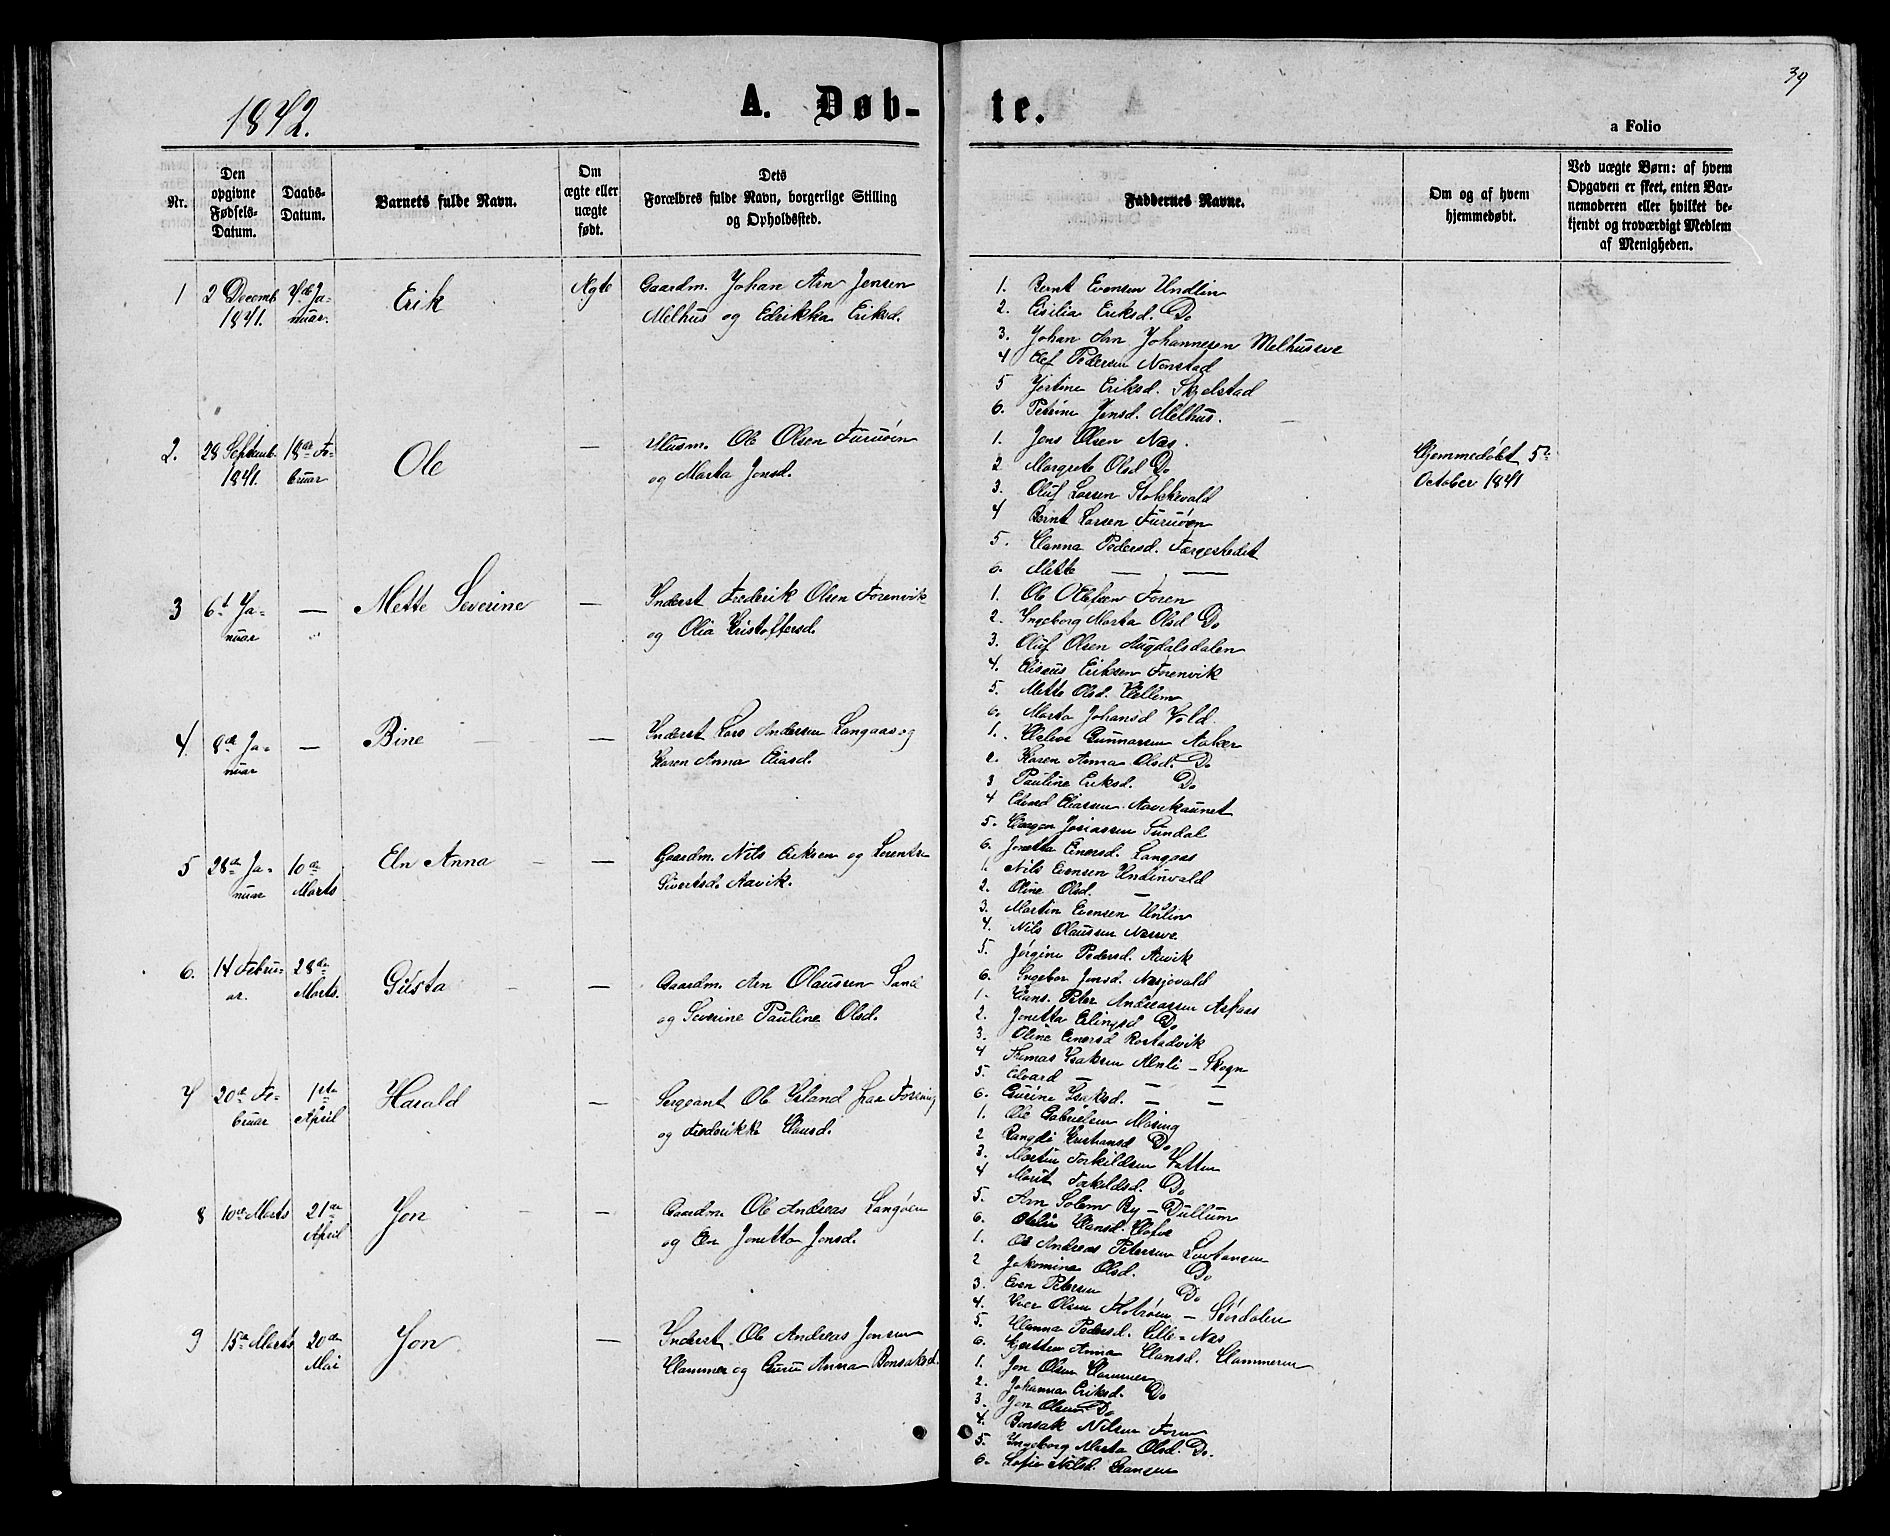 39
1842.
A. Døb-
te.
a Folio
Nr.
Den
opgivne
Fødsels-
Datum.
Daabs-
Datum.
Barnets fulde Navn.
Om
ægte eller
uægte
født.
Dets
Forældres fulde Navn, borgerlige Stilling
og Opholdssted.
Faddernes Navne.
Om og af hvem
hjemmedøbt.
Ved uægte Børn: af hvem
Opgaven er skeet, enten Bar-
nemoderen eller hvilket be-
kjendt og troværdigt Medlem
af Menigheden.
1
2 Decemb.
1841.
Ja-
nuar.
Erik
Ægte
Gaardm. Johan Arn Jensen
Melhus og Edrikka Eriksd.
1. Bernt Evensen Undlin
2. Cicilia Eriksd. Do
3. Johan Arn Johannesen Melhusve
4 Olef Pedersen Nonstad
5 Eriksd. Skjelstad
6. Petrine Jensd. Melhus.
2.
28 Septemb.
1841.
18de Fe-
bruar
Ole
—
Husm. Ole Olsen Furuøen
og Marta Jonsd.
1. Jens Olsen Nas.
2 Margrete Olsd Do
3. Oluf Larsen Stokkevald
4 Bernt Larsen Furuøen
5. Hanna Pedersd. Færgestedet
6. Mette — —
Hjemmedøbt 5te
October 1841
3
6t Ja-
nuar
—
Mette Severine
—
Inderst Frederik Olsen Forenvik
og Olia Kristoffersd.
1. Ole Foren
2. Ingeborg Marta Olsd Do
3. Oluf Olsen Augdalsdalen
4. Elisæus Eriksen Forenvik
5. Mette Olsd. Hellem
6. Marta Johansd Vold
4.
8de Ja-
nuar
—
Bine
—
Inderst Lars Andersen Langaas og
Karen Anna Eliasd.
1. Gunnarsen Aaker
2. Karen Anna Olsd. Do
3 Pauline Eriksd. Do
4 Edvard Eliassen Aavikaunet
5. Haagen Josiassen Sundal
6. Jonetta Einersd. Langaas
5
28de Ja-
nuar
10de
Marts
Eln Anna
—
Gaardm. Nils Eriksen og Lorentse
Sivertsd. Aavik.
1. Nils Evensen Undinvald
2. Oline Olsd. —
3. Martin Evensen Unlin
4. Nils Olaussen Næsve
5. Jørgine Pedersd. Aavik
6. Ingebor Jonsd. Næsjovald
6.
14 Febru-
ar.
28de
Marts.
Gusta
—
Gaardm. Arn Olaussen Sand
og Severine Pauline Olsd.
1. Hans Peter Andreassen Aspaas
2. Jonetta Elingsd Do
3. Oline Einersd Rostadvik
4 Tomas Isaksen Alnli — Skogn
5. Edvard — — —
6. Gurine Isaksd. — —
7
20de Fe-
bruar
1ste
April
Harald
—
Sergeant Ole Island fra Forening
og Frederikke Hansd.
1. Ole Gabrielsen Mosing
2 Rangdi Kristiansd Do
3. Martin Torkildsen Vatten
4 Marit Torkildsd. Do
5. Arn Solem By — Dullum
6. Otelie Hansd. Hofve
8
10de Marts
21de
April
Jon
—
Gaardm. Ole Andreas Langøen
og Eln Jonetta Jonsd.
1. Ole Andreas Petersen Levtangen
2 Jakomina Olsd. Do
3. Even Petersen Do
4. Iver Olsen — Størdalen
5. Hanna Pedersd. Lille-Nas
6. Anna Hansd. Hammeren
9
15de Marts
20de
Mai
Jon
—
Inderst Ole Andreas Jonsen
Hammer og Guru Anna Bonsaksd.
1. Jon Olsen Hammer
2. Johanna Eriksd. Do
3. Jon Olsen Do
4. Bonsak Nilsen Foren
5. Ingeborg Marta Olsd. Do.
6. Sofie Nilsd.